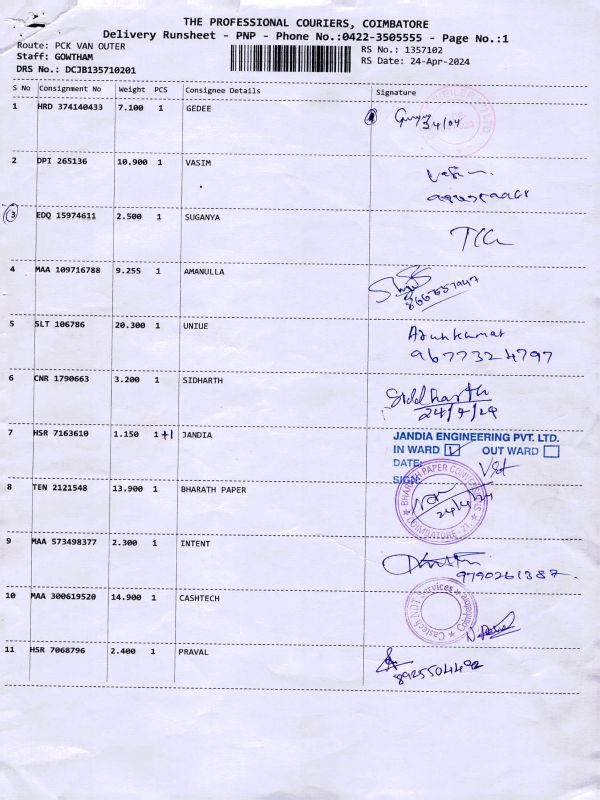 THE PROFESSIONAL COURIERS, COIMBATORE
Delivery Runsheet - PNP - Phone No.:0422-3505555 - Page No.:1
Route: PCK VAN OUTER
RS No.: 1357102
Staff: GOWTHAM
RS Date: 24-Apr-2024
DRS No.: DCJB135710201
S No Consignment No Weight PCS Consignee Details Signature
1 HRD 374140433 7.100 1 GEDEE
2 DPI 265136 10.900 1 VASIM
3 EDQ 15974611 2.500 1 SUGANYA
4 MAA 109716788 9.255 1 AMANULLA
5 SLT 106786 20.300 1 UNIUE Arunkumar
9677324797
6 CNR 1790663 3.200 1 SIDHARTH Siddharth
24/4/24
7 HSR 7163610 1.150 1+1 JANDIA JANDIA ENGINEERING PVT. LTD.
IN WARD OUT WARD
DATE:
SIGN:
8 TEN 2121548 13.900 1 BHARATH PAPER BHARATH PAPER
COIMBATORE
9 MAA 573498377 2.300 1 INTENT
9790261387
10 MAA 300619520 14.900 1 CASHTECH Castech NDT Services Coimbatore
11 HSR 7068796 2.400 1 PRAVAL
8925504492